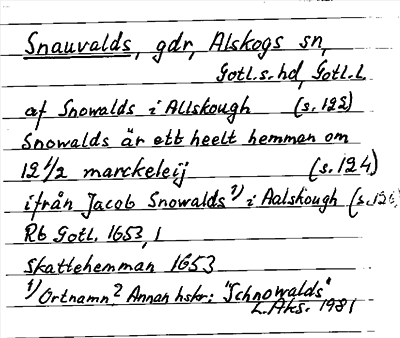 Snauvalds, gdr, Alskogs sn,
Gotl.s.hd, Gotl.L
af Snowalds i Allskough (s.122)
Snowalds är ett heelt hemman om
12 1/2 marckeleij (s.124)
ifrån Jacob Snowalds 1) i Aalskough (s.126)
Rb Gotl. 1653,1
Skattehemman 1653
1) Ortnamn? Annan hskr: "Schnowalds"
L.Aks. 1981